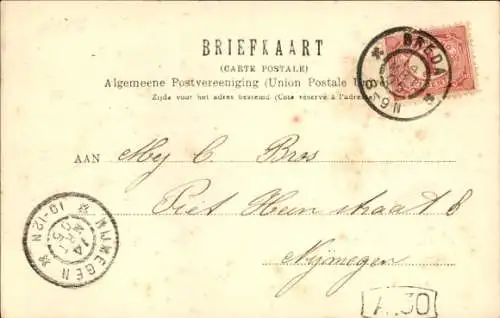 BRIEFKAART
(CARTE POSTALE)
Algemeene Postvereeniging (Union Postale
Zijde voor het adres bestemd (Côté réservé à l'adresse)
BREDA
AAN Mej C. Bros
Piet Heinstraat 8
Nijmegen
NIJMEGEN
10-12N
14
MRT
05
A.30